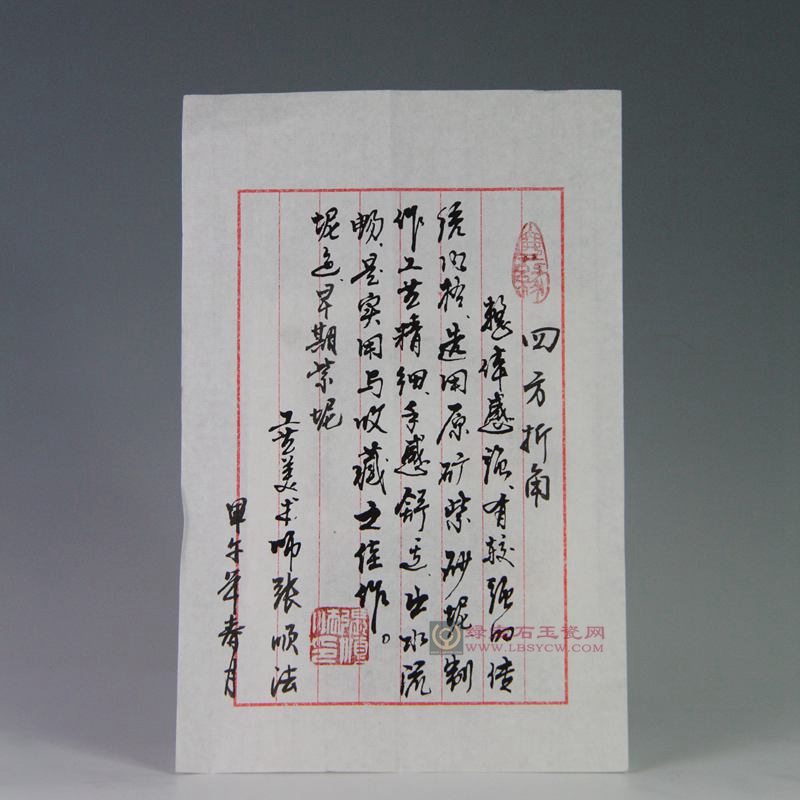 四方折角
整体感强、有较强的传
统风格、选用原矿紫砂坭制
作工艺精细、手感舒适、出水流
畅、是实用与收藏之佳作。
坭色、早期紫坭
工艺美术师张顺法
甲午年春月
张顺法印
绿宝石玉瓷网
WWW.LBSYCW.COM